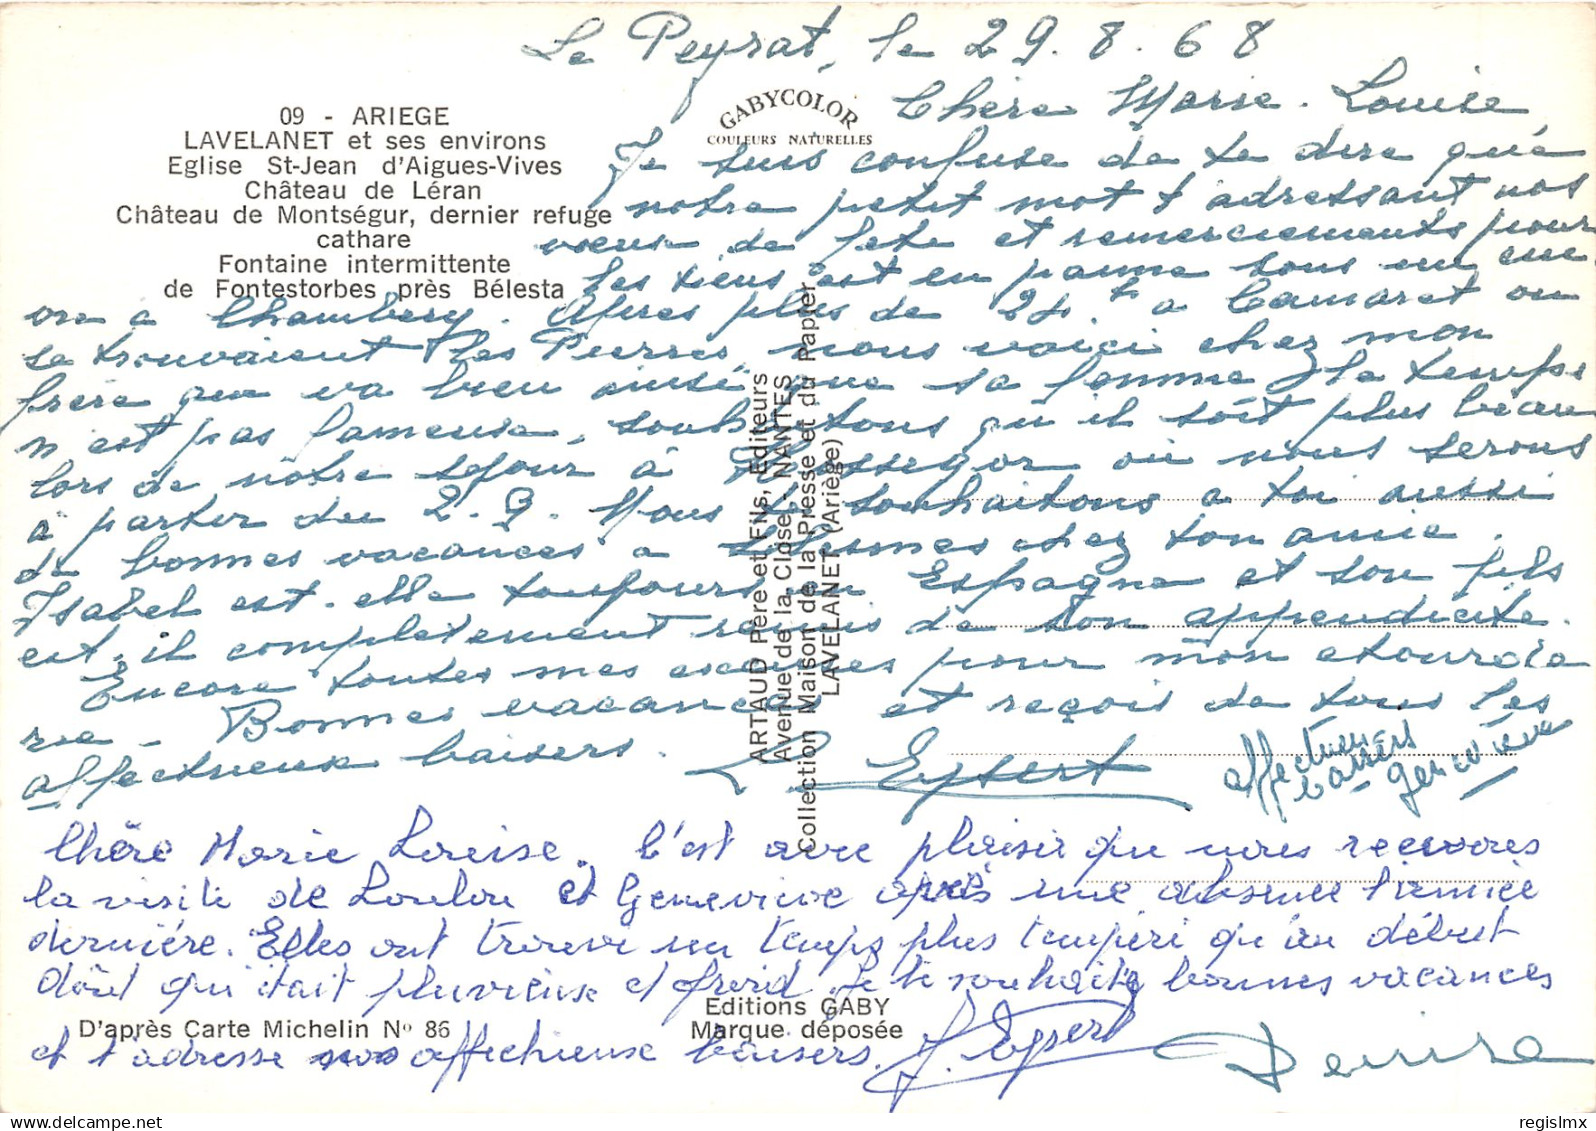 Le Peyrat, le 29.8.68
09 - ARIEGE
LAVELANET et ses environs
Eglise St-Jean d'Aigues-Vives
Château de Léran
Château de Montségur, dernier refuge
cathare
Fontaine intermittente
de Fontestorbes près Bélesta
GABYCOLOR
COULEURS NATURELLES
Chère Marie-Louise
Je suis confuse de te dire que
notre petit mot t'adressant nos
vœux de fete et remerciements pour
les tiens est en panne sous un
a Chambery. Apres plus de 24h a Camaret ou
se trouvaient les Pierres, nous voici chez mon
frère qui va bien ainsi que sa femme, le temps
n'est pas fameux, souhaitons qu'il soit plus beau
lors de notre sejour à Hossegor où nous serons
à partir du 2.9. Nous te souhaitons a toi aussi
de bonnes vacances a chez ton amie.
Isabel est-elle toujours en Espagne et son fils
est-il completement remis de son appendicite.
Encore toutes mes excuses pour mon etourde
rie - Bonnes vacances et reçois de tous les
affectueux baisers.
L. Eyssert
affectueux
baisers
Geneviève
ARTAUD Père et Fils, Editeurs
Avenue de la Close - NANTES
Collection Maison de la Presse et du Papier
LAVELANET (Ariège)
Chère Marie Louise. C'est avec plaisir que nous recevons
la visite de Loulou et Geneviève après une absence l'année
dernière. Elles ont trouvé un temps plus tempéré qu'au début
d'août qui était pluvieux et froid. Je te souhaite bonnes vacances
et t'adresse nos affectueux baisers.
Editions GABY
Marque déposée
D'après Carte Michelin N° 86
Denise
regislmx